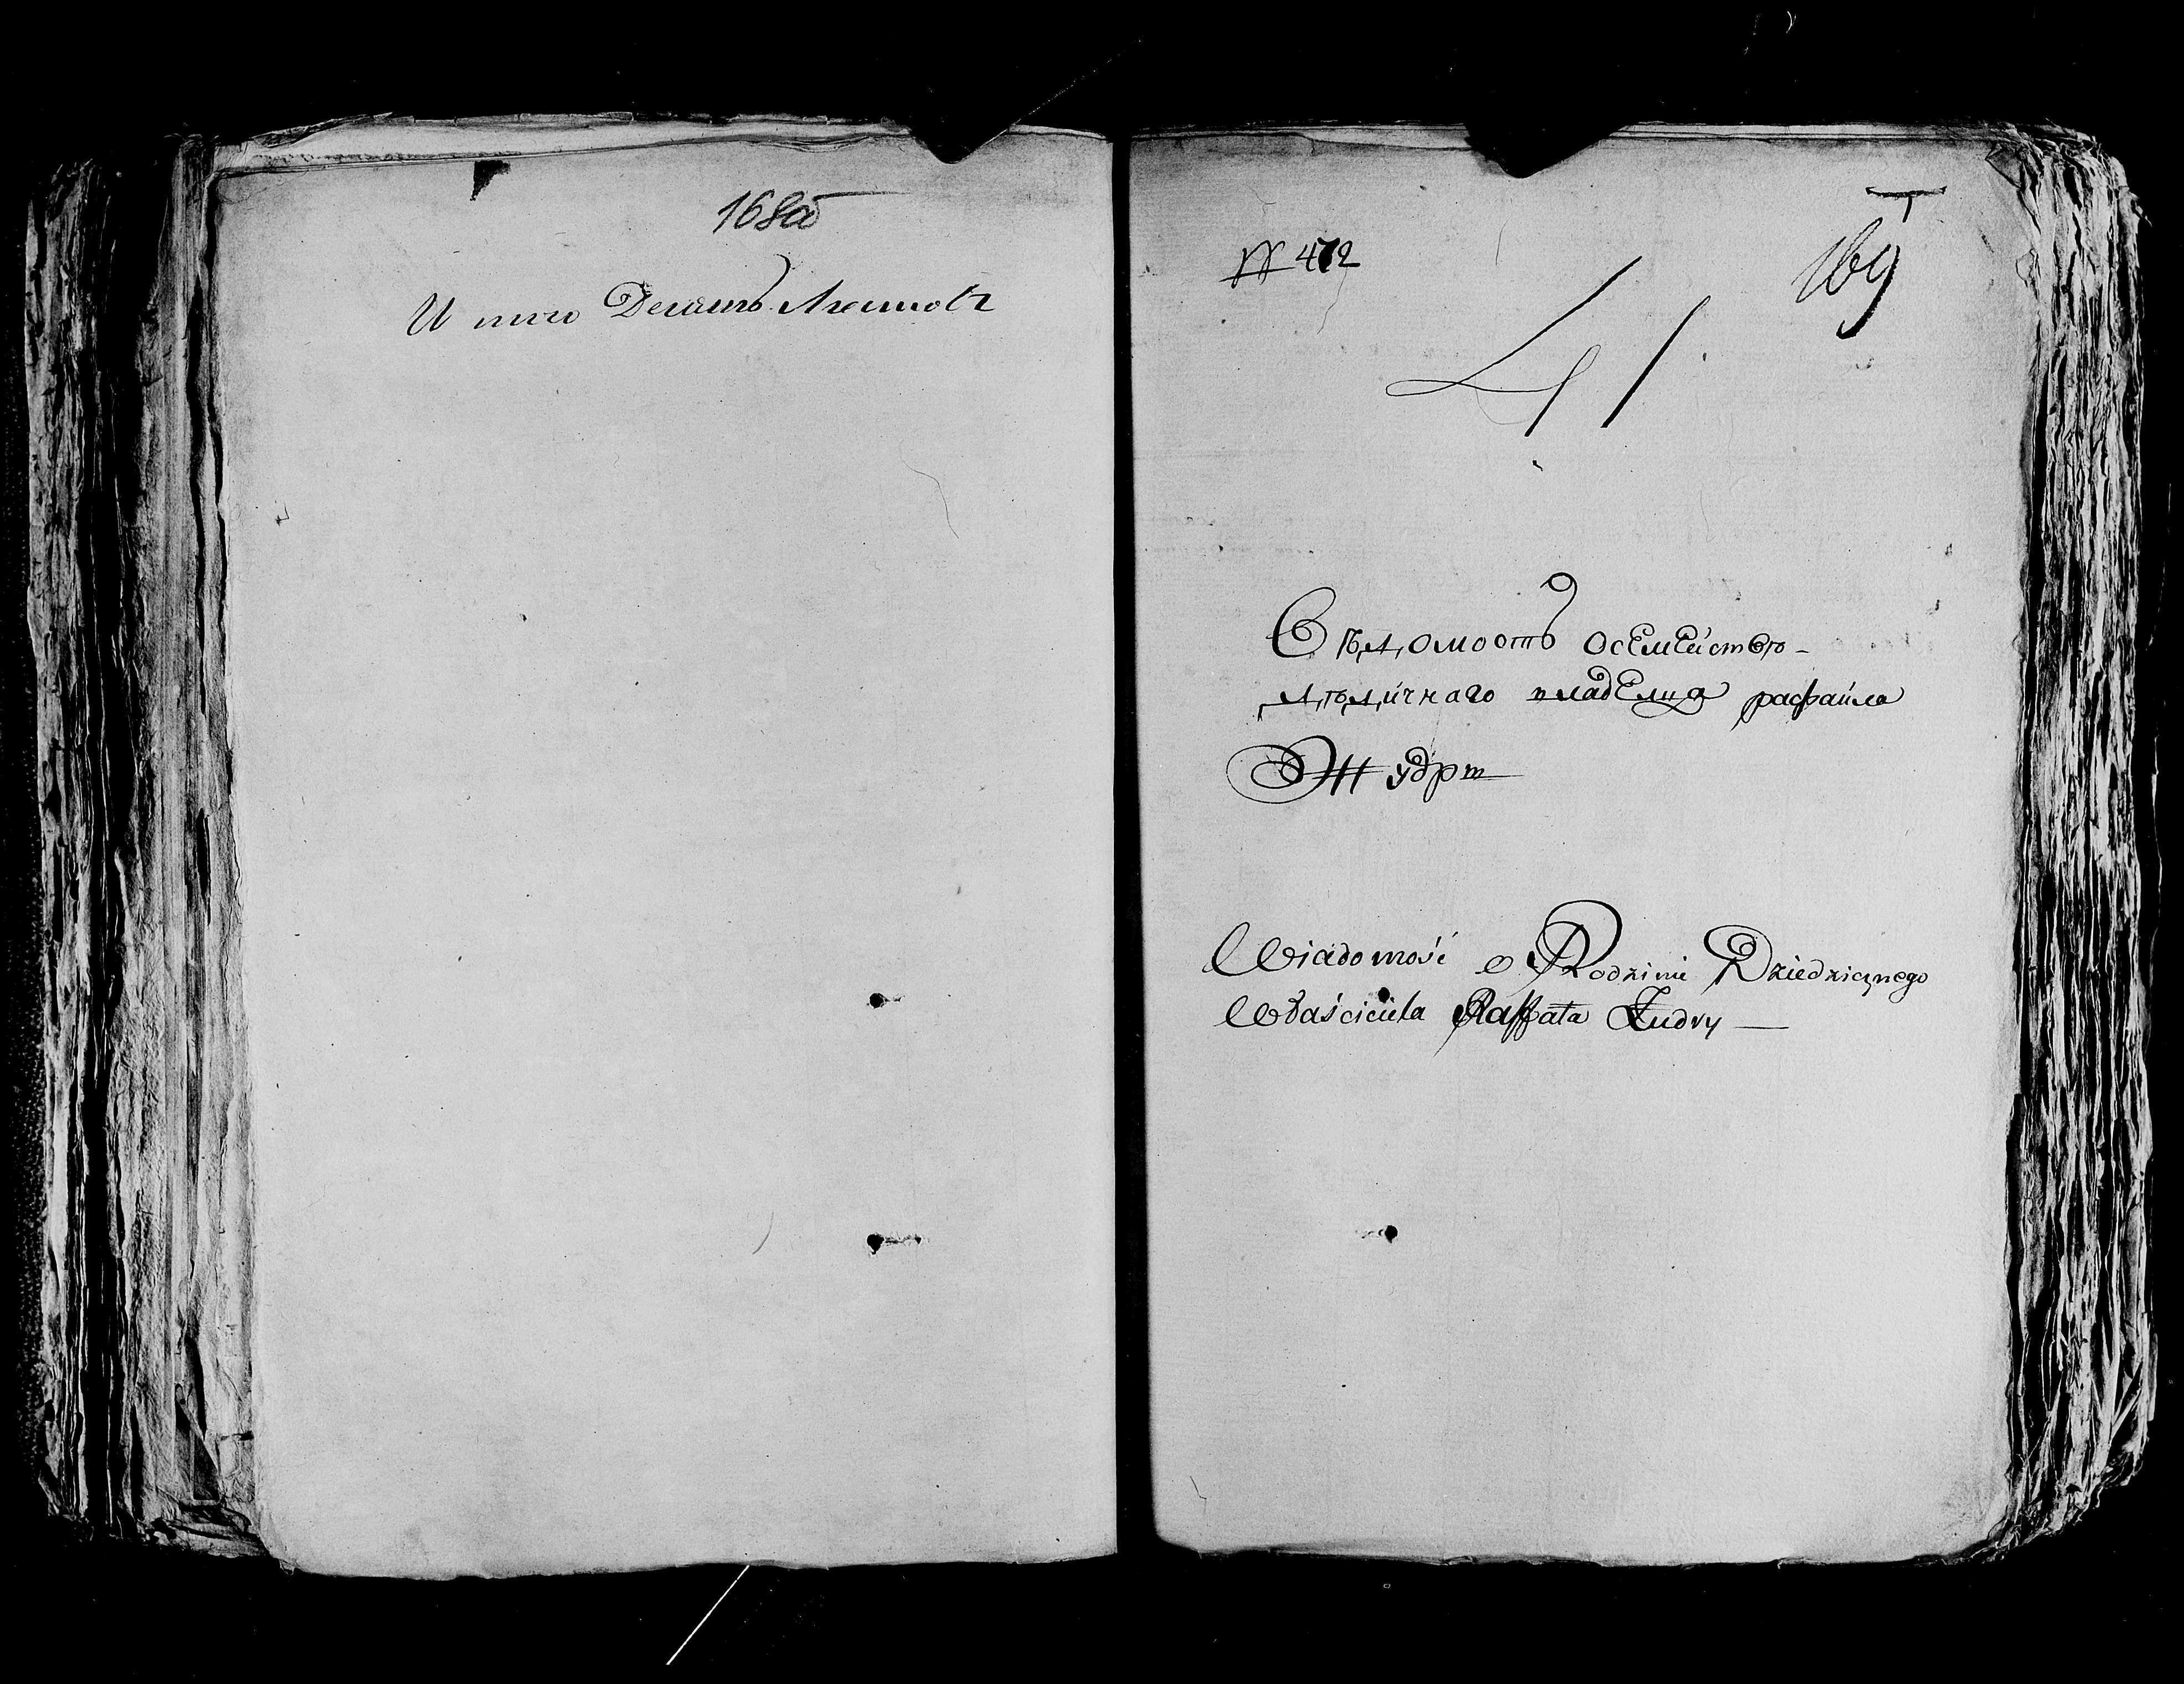 168об
И того Десять Листовъ
№ 472
169
41
Вѣдомость осемействѣ
дѣдичнаго владелца рафаила
Жудры
Wiadomość o Rodzinie Dziedzicznego
Właściciela Raffała Żudry